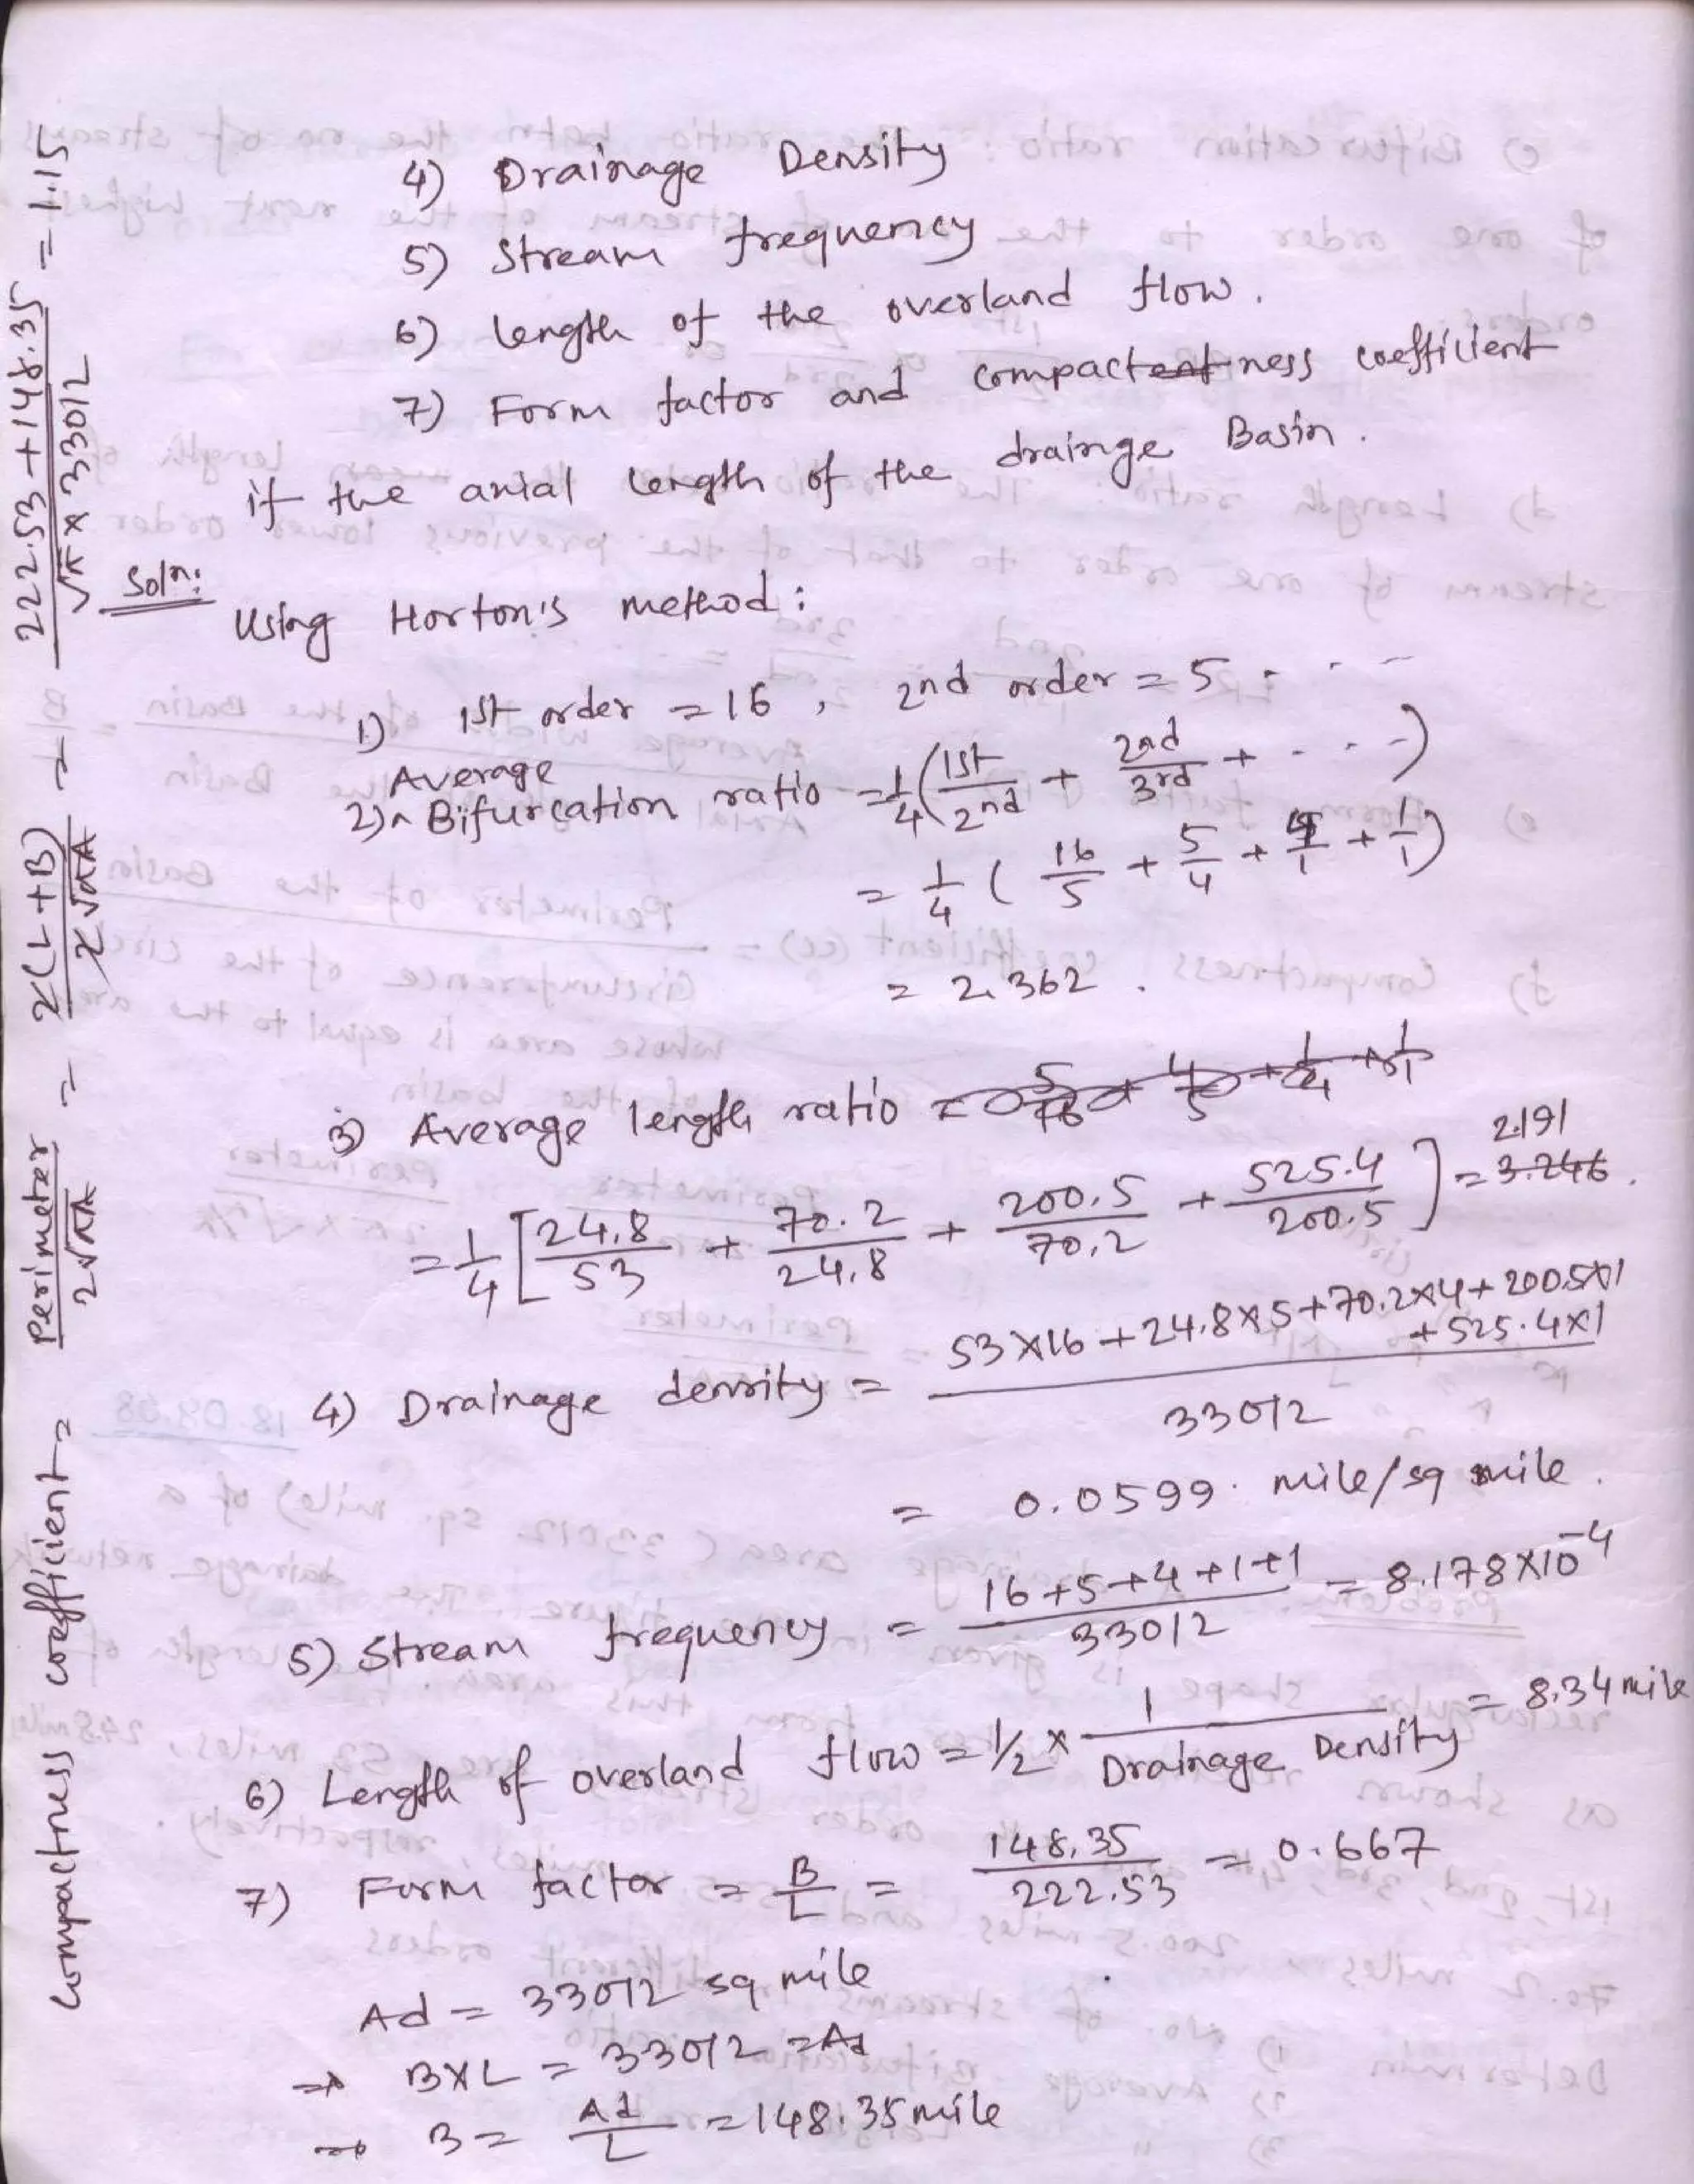 4) Drainage Density
5) Stream frequency
6) length of the overland flow.
7) Form factor and compactness coefficient
if the axial length of the drainge Basin.
Soln:
Using Horton's method:
1) 1st order = 16, 2nd order = 5 . . . -
2) Average Bifurcation ratio = 1/4 (1st/2nd + 2nd/3rd + - . . -)
= 1/4 (16/5 + 5/4 + 4/1 + 1/1)
= 2.362.
3) Average length ratio =
= 1/4 [24.8/53 + 70.2/24.8 + 200.5/70.2 + 525.4/200.5] = 3.246 2.191
4) Drainage density = (53×16 + 24.8×5 + 70.2×4 + 200.5×1 + 525.4×1) / 33012
= 0.0599. mile/sq mile.
5) Stream frequency = (16+5+4+1+1)/33012 = 8.178×10^-4
6) Length of overland flow = 1/2 × 1/Drainage Density = 8.34 mile
7) Form factor = B/L = 148.35/222.53 = 0.667
Ad = 33012 sq mile
⇒ B×L = 33012 = Ad
⇒ B = Ad/L = 148.35 mile
Compactness coefficient = Perimeter/2√πA = 2(L+B)/2√πA = (222.53+148.35)/√π×33012 = 1.15